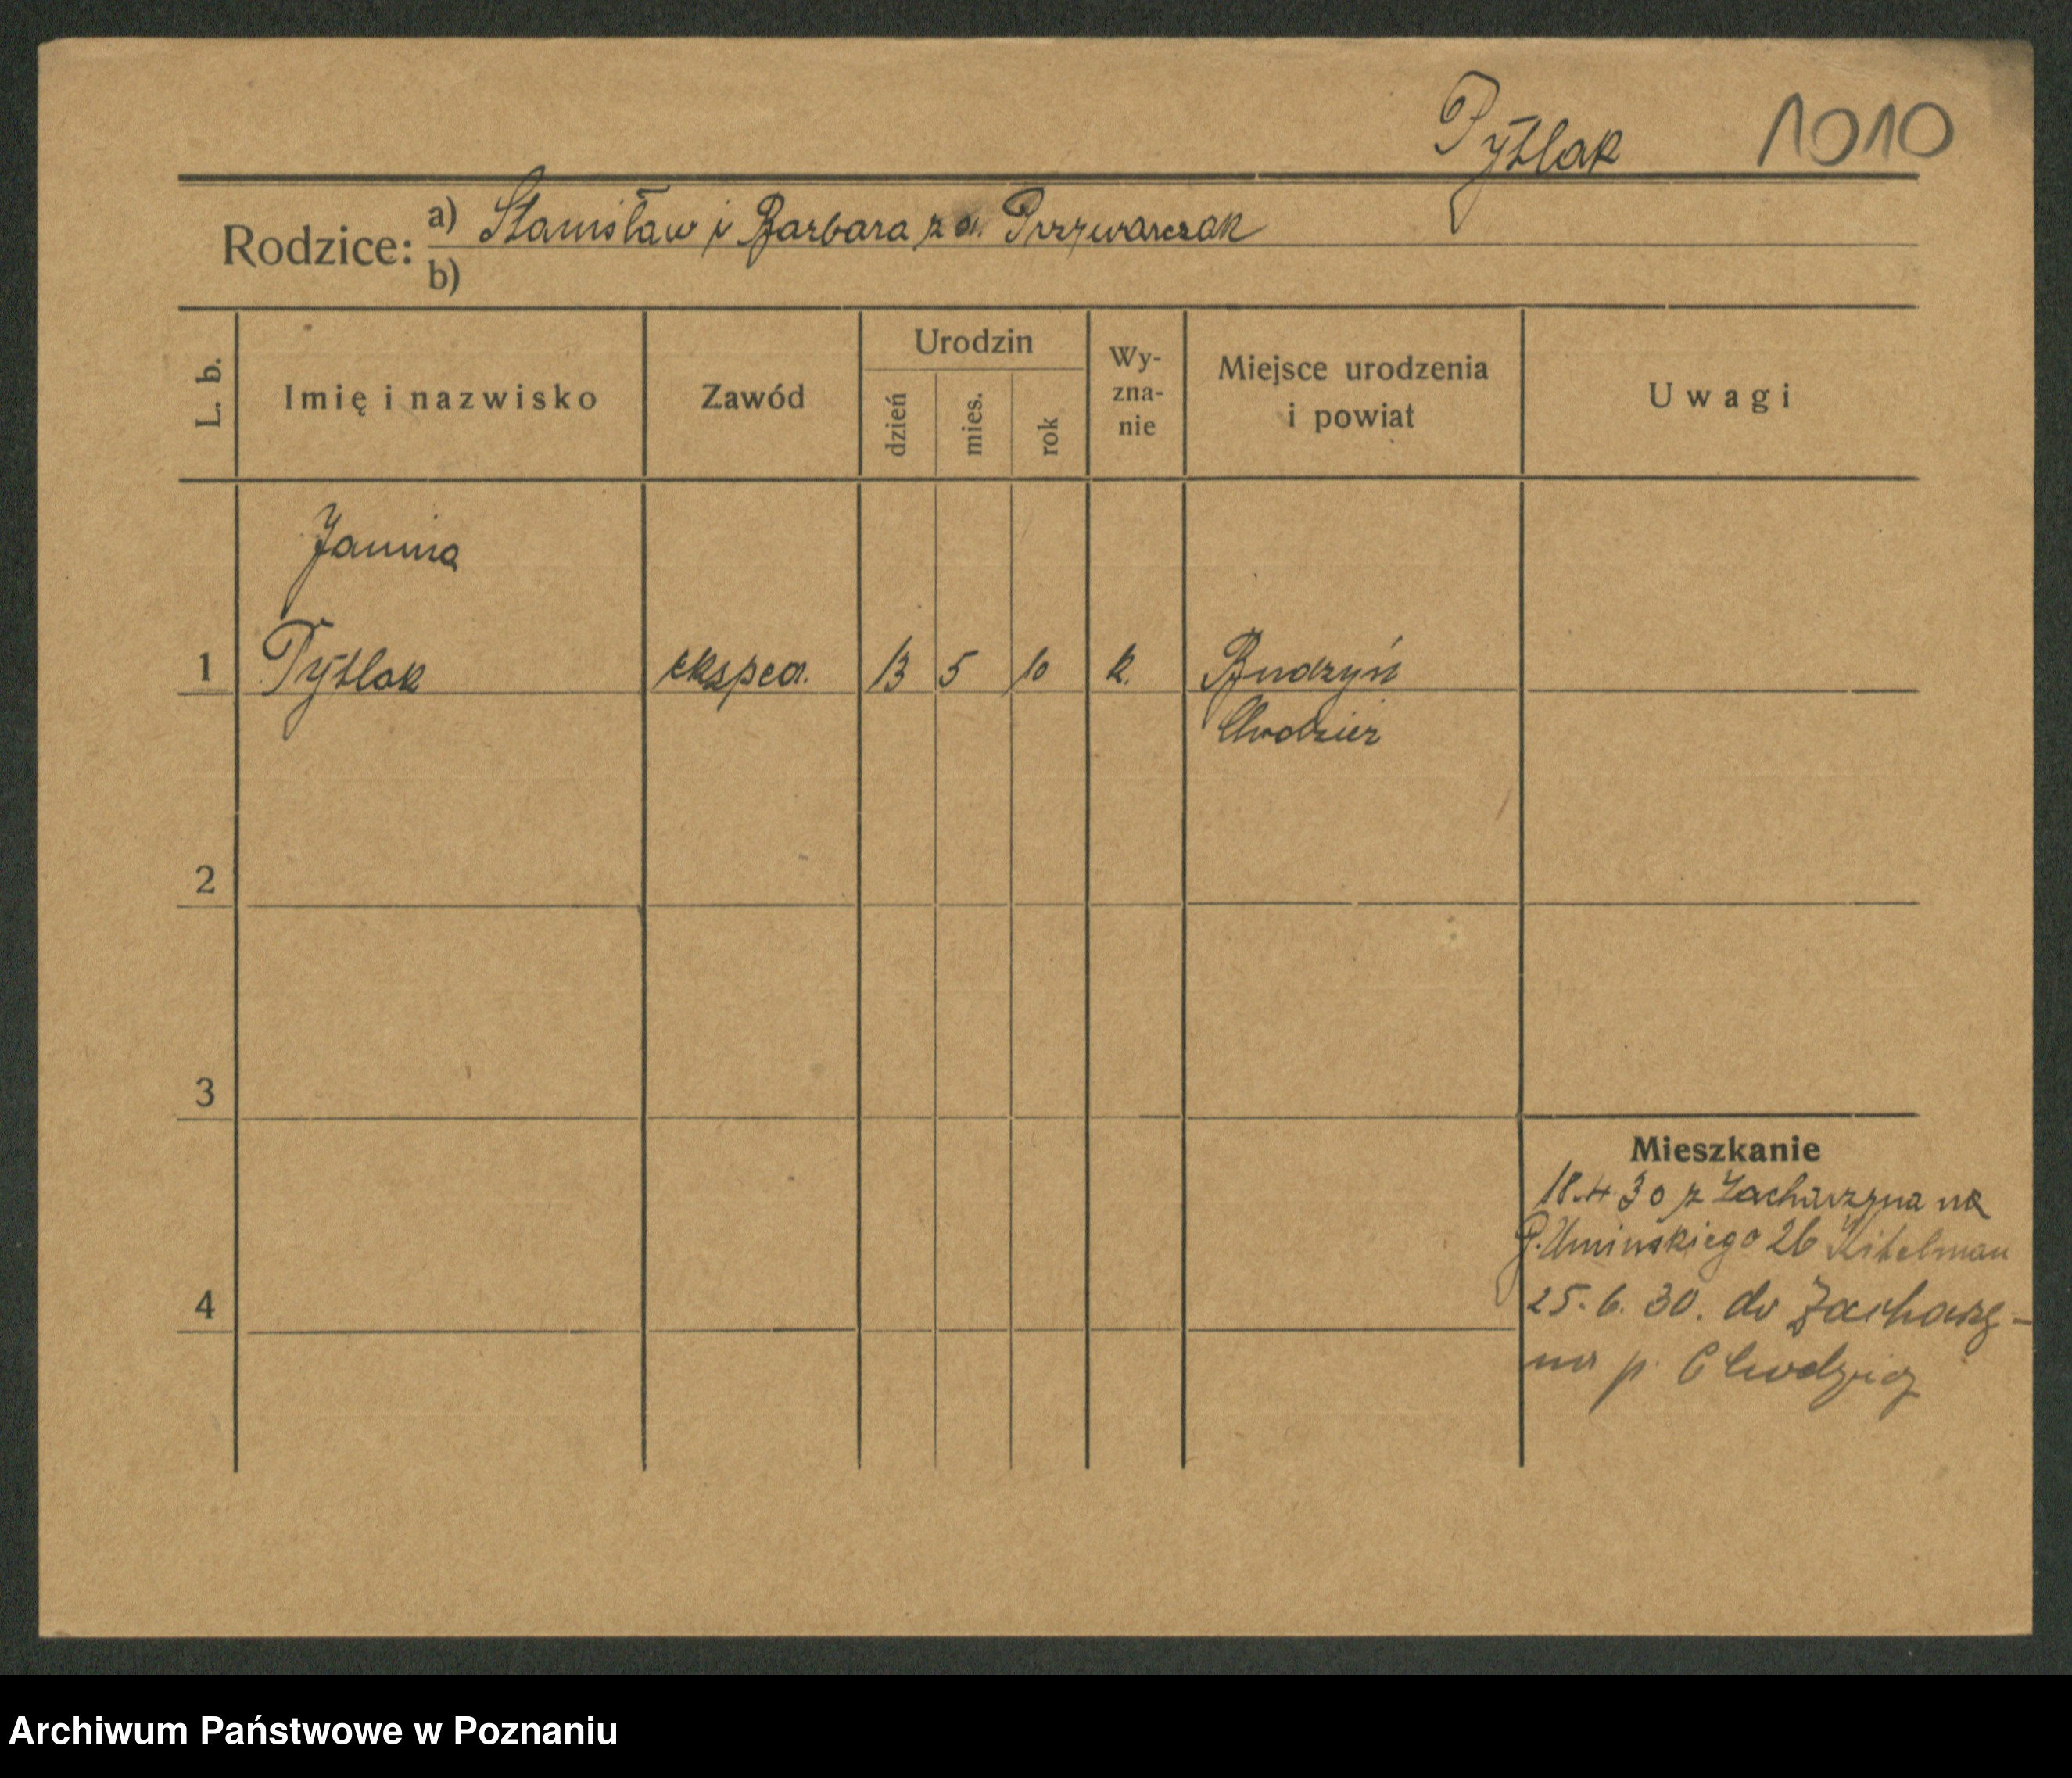 Pytlak 1010
Rodzice: a) Stanisław i Barbara z d. Przywarczak
b)
L. b. Imię i nazwisko Zawód Urodzin dzień mies. rok Wy-zna-nie Miejsce urodzenia i powiat Uwagi
Janina
1 Pytlak eksped. 13 5 10 k. Budzyń
Chodzież
2
3
Mieszkanie
18.4.30 z Zacharzyna na
P. Umińskiego 26 Kitelman
25.6.30. do Zacharzy-
na p. Chodzież
4
Archiwum Państwowe w Poznaniu